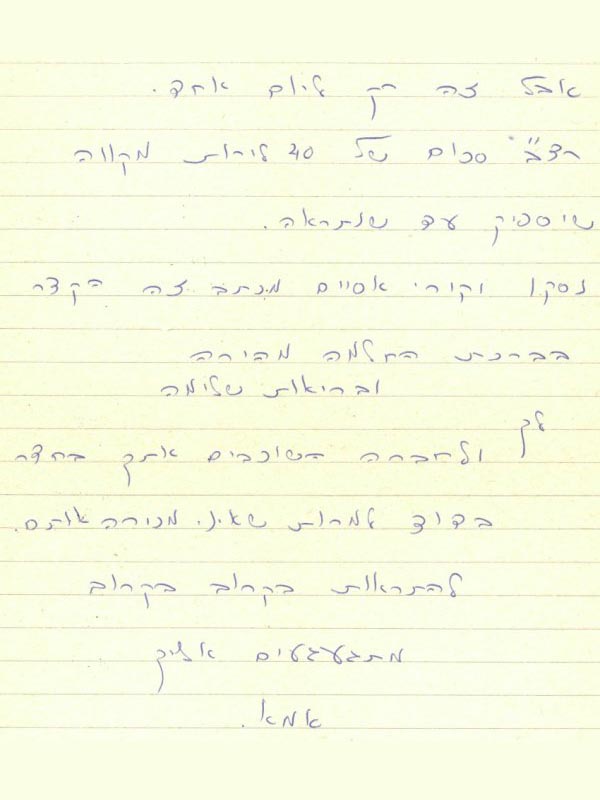 אבל זה רק ליום אחד.
רצב" סכום של 40 לירות מקווה
שיספיק עד שנתראה.
נסקו וקורי אסיים מכתב זה הקצר
בברכת החלמה מהירה
ובריאות שלימה
לך
ולחברה השוכבים אתך בחדר
בדוד למרות שאיני מכירה אותם.
להתראות בקרוב בקרוב
מתגעגעים אליך
אמא.